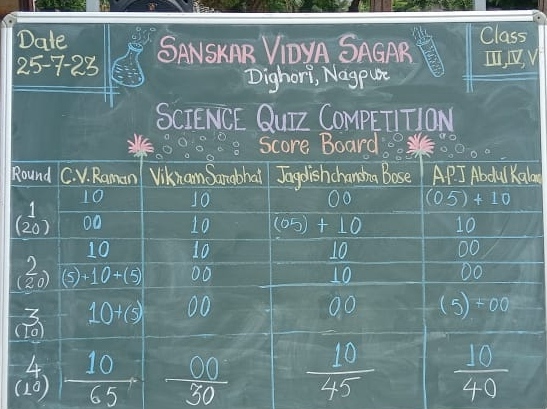 Date
25-7-23
SANSKAR VIDYA SAGAR
Dighori, Nagpur
Class
III, IV, V
SCIENCE QUIZ COMPETITION
Score Board
Round C.V. Raman Vikram Sarabhai Jagdishchandra Bose APJ Abdul Kalam
1 10 10 00 (05) + 10
(20) 00 10 (05) + 10 10
2 10 10 10 00
(20) (5)+10+(5) 00 10 00
3 10+(5) 00 00 (5) + 00
(10)
4 10 00 10 10
(10) 65 30 45 40